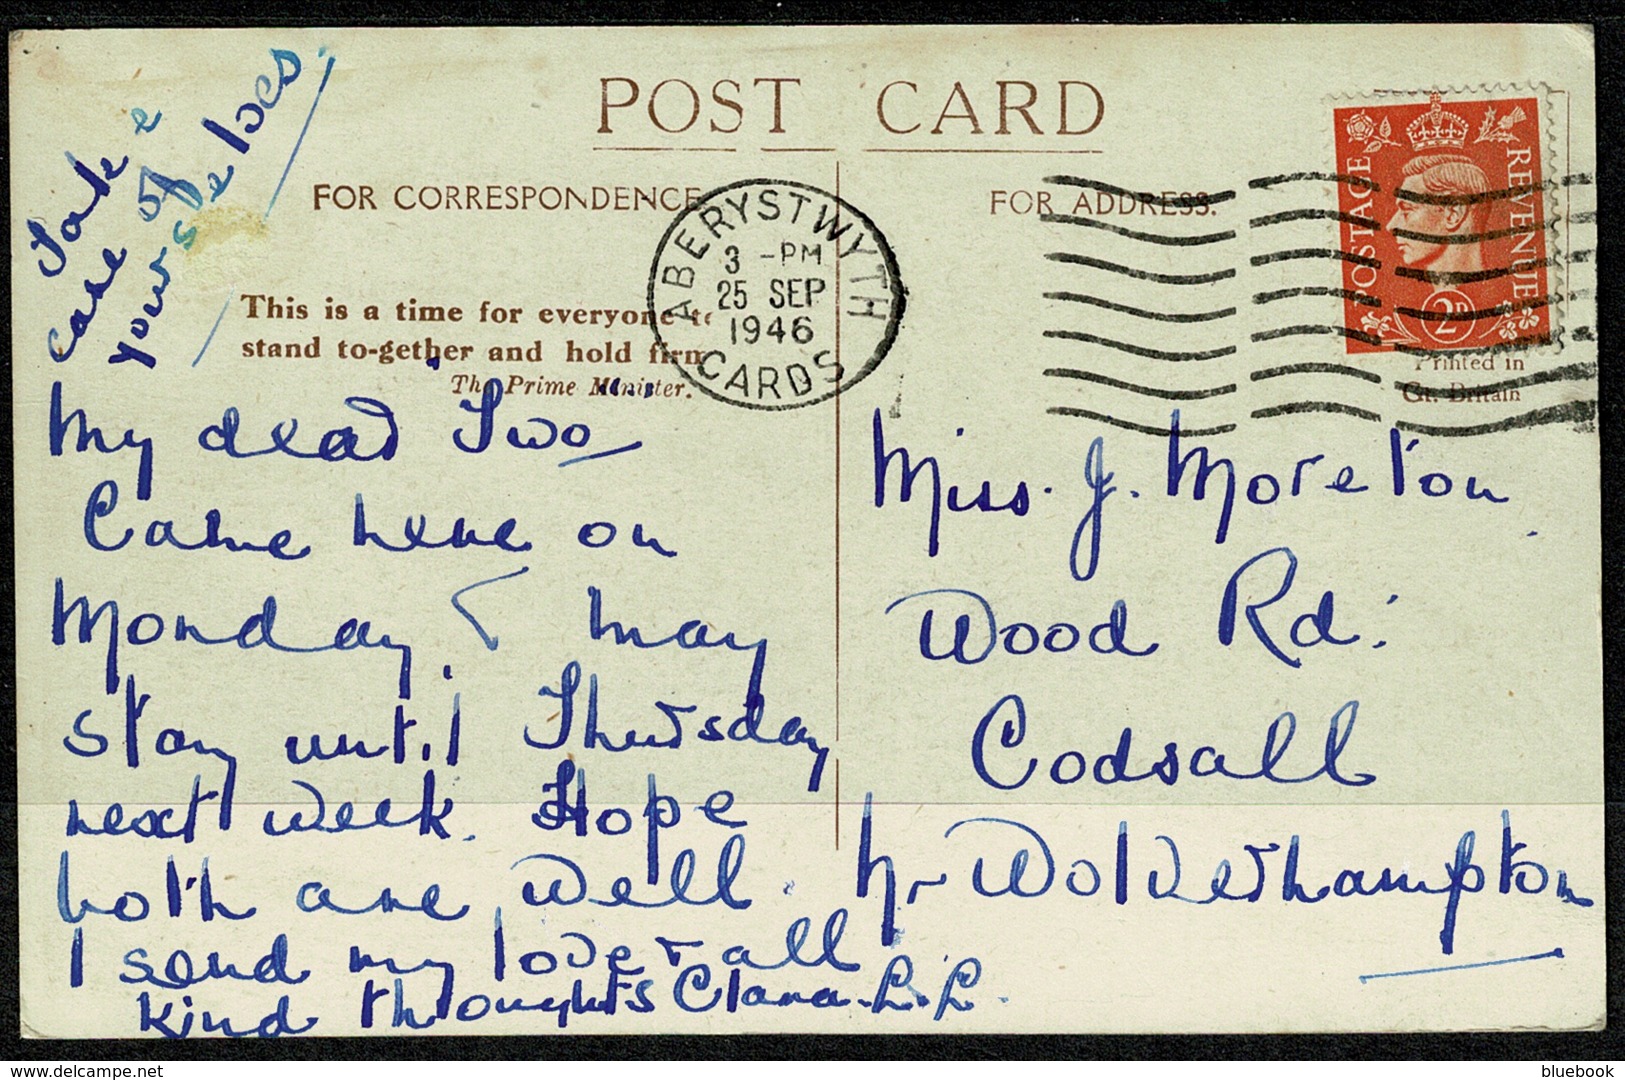 POST CARD
FOR CORRESPONDENCE
FOR ADDRESS.
Take
care of
yourselves
This is a time for everyone to
stand to-gether and hold firm
The Prime Minister.
ABERYSTWYTH
3 - PM
25 SEP
1946
CARDS
POSTAGE
REVENUE
2D
Printed in
Gt. Britain
My dear Two
Came here on
Monday & may
stay until Thursday
next week. Hope
both are well.
I send my love & all
kind thoughts Clara. L. L.
Miss. J. Moreton
Wood Rd:
Codsall
Nr Wolverhampton
delcampe.net
bluebook